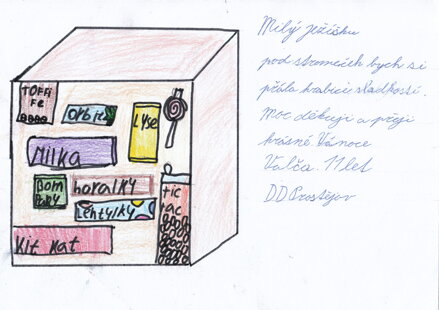 TOFFI
FE
Orbit
Lyse
Milka
BOM
BONY
horalky
Lentylky
tic
tac
Kit Kat
Milý ježíšku
pod stromeček bych si
přála krabici sladkostí.
Moc děkuji a přeji
krásné Vánoce
Valča. 11 let
DD Prostějov